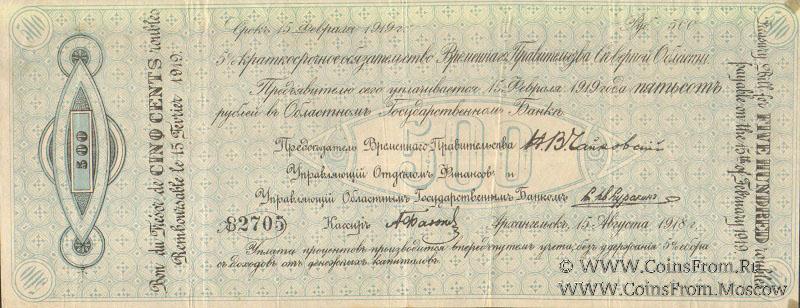 500
500
Bon du Trésor de CINQ CENTS roubles
Remboursable le 15 Février 1919.
Срокъ 15 Февраля 1919 г.
Рβ. 500
5% краткосрочное обязательство Временнаго Правительства Сѣверной Области
Предъявителю сего уплачивается 15 Февраля 1919 года пятьсотъ
рублей въ Областномъ Государственномъ Банкѣ
500
Предсѣдатель Временнаго Правительства Н.В. Чайковскій
Управляющій Отдѣломъ Финансовъ и
Управляющій Областнымъ Государственнымъ Банкомъ
№ 82705
Кассиръ
Архангельскъ, 15 Августа 1918 г.
Уплата процентовъ производится впередъ путемъ учета, безъ удержанія 5% сбора
съ доходовъ отъ денежныхъ капиталовъ.
Treasury Bill for FIVE HUNDRED roubles
payable on the 15th of February 1919
© WWW.CoinsFrom.Ru
© WWW.CoinsFrom.Moscow